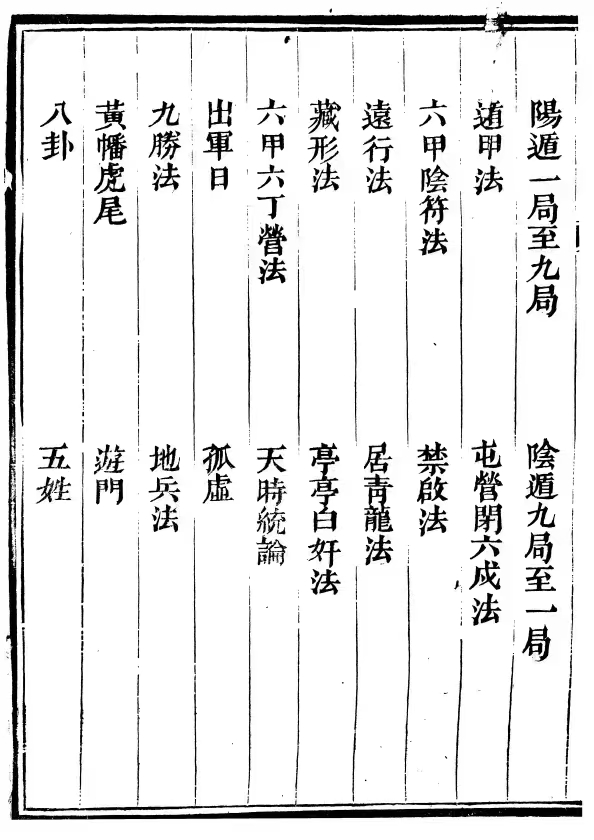 陽遁一局至九局 陰遁九局至一局
遁甲法 屯營閉六成法
六甲陰符法 禁啟法
遠行法 居青龍法
藏形法 亭亭白奸法
六甲六丁營法 天時統論
出軍日 孤虛
九勝法 地兵法
黃幡虎尾 遊門
八卦 五姓